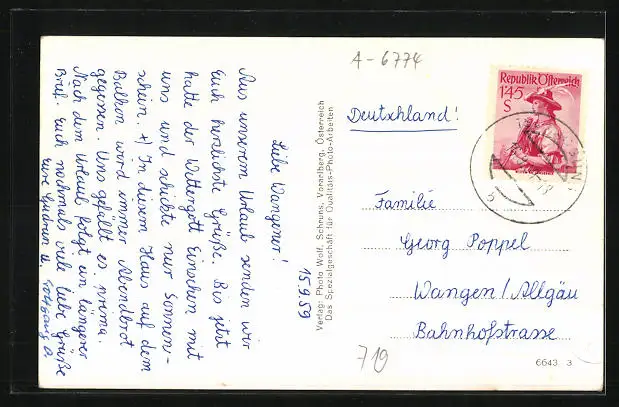 A-6774
Republik Österreich
1'45
S
Deutschland!
Familie
Georg Poppel
Wangen/Allgäu
Bahnhofstrasse
719
6643 3
Verlag: Photo Wolf, Schruns, Vorarlberg, Österreich
Das Spezialgeschäft für Qualitäts-Photo-Arbeiten
15.9.59
Liebe Wangener!
Aus unserem Urlaub senden wir
Euch herzlichste Grüße. Bis jetzt
hatte der Wettergott Einsehen mit
uns und schickte nur Sonnen-
schein. +) In diesem Haus auf dem
Balkon wird immer Abendbrot
gegessen. Uns gefällt es prima.
Nach dem Urlaub folgt ein längerer
Brief. Euch nochmals viele liebe Grüße
Eure Gudrun u. Wolfgang